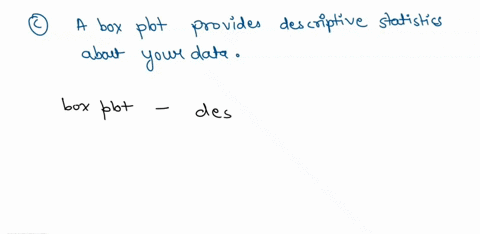 Ⓒ A box plot provides descriptive statistics
about your data.
box plot - des